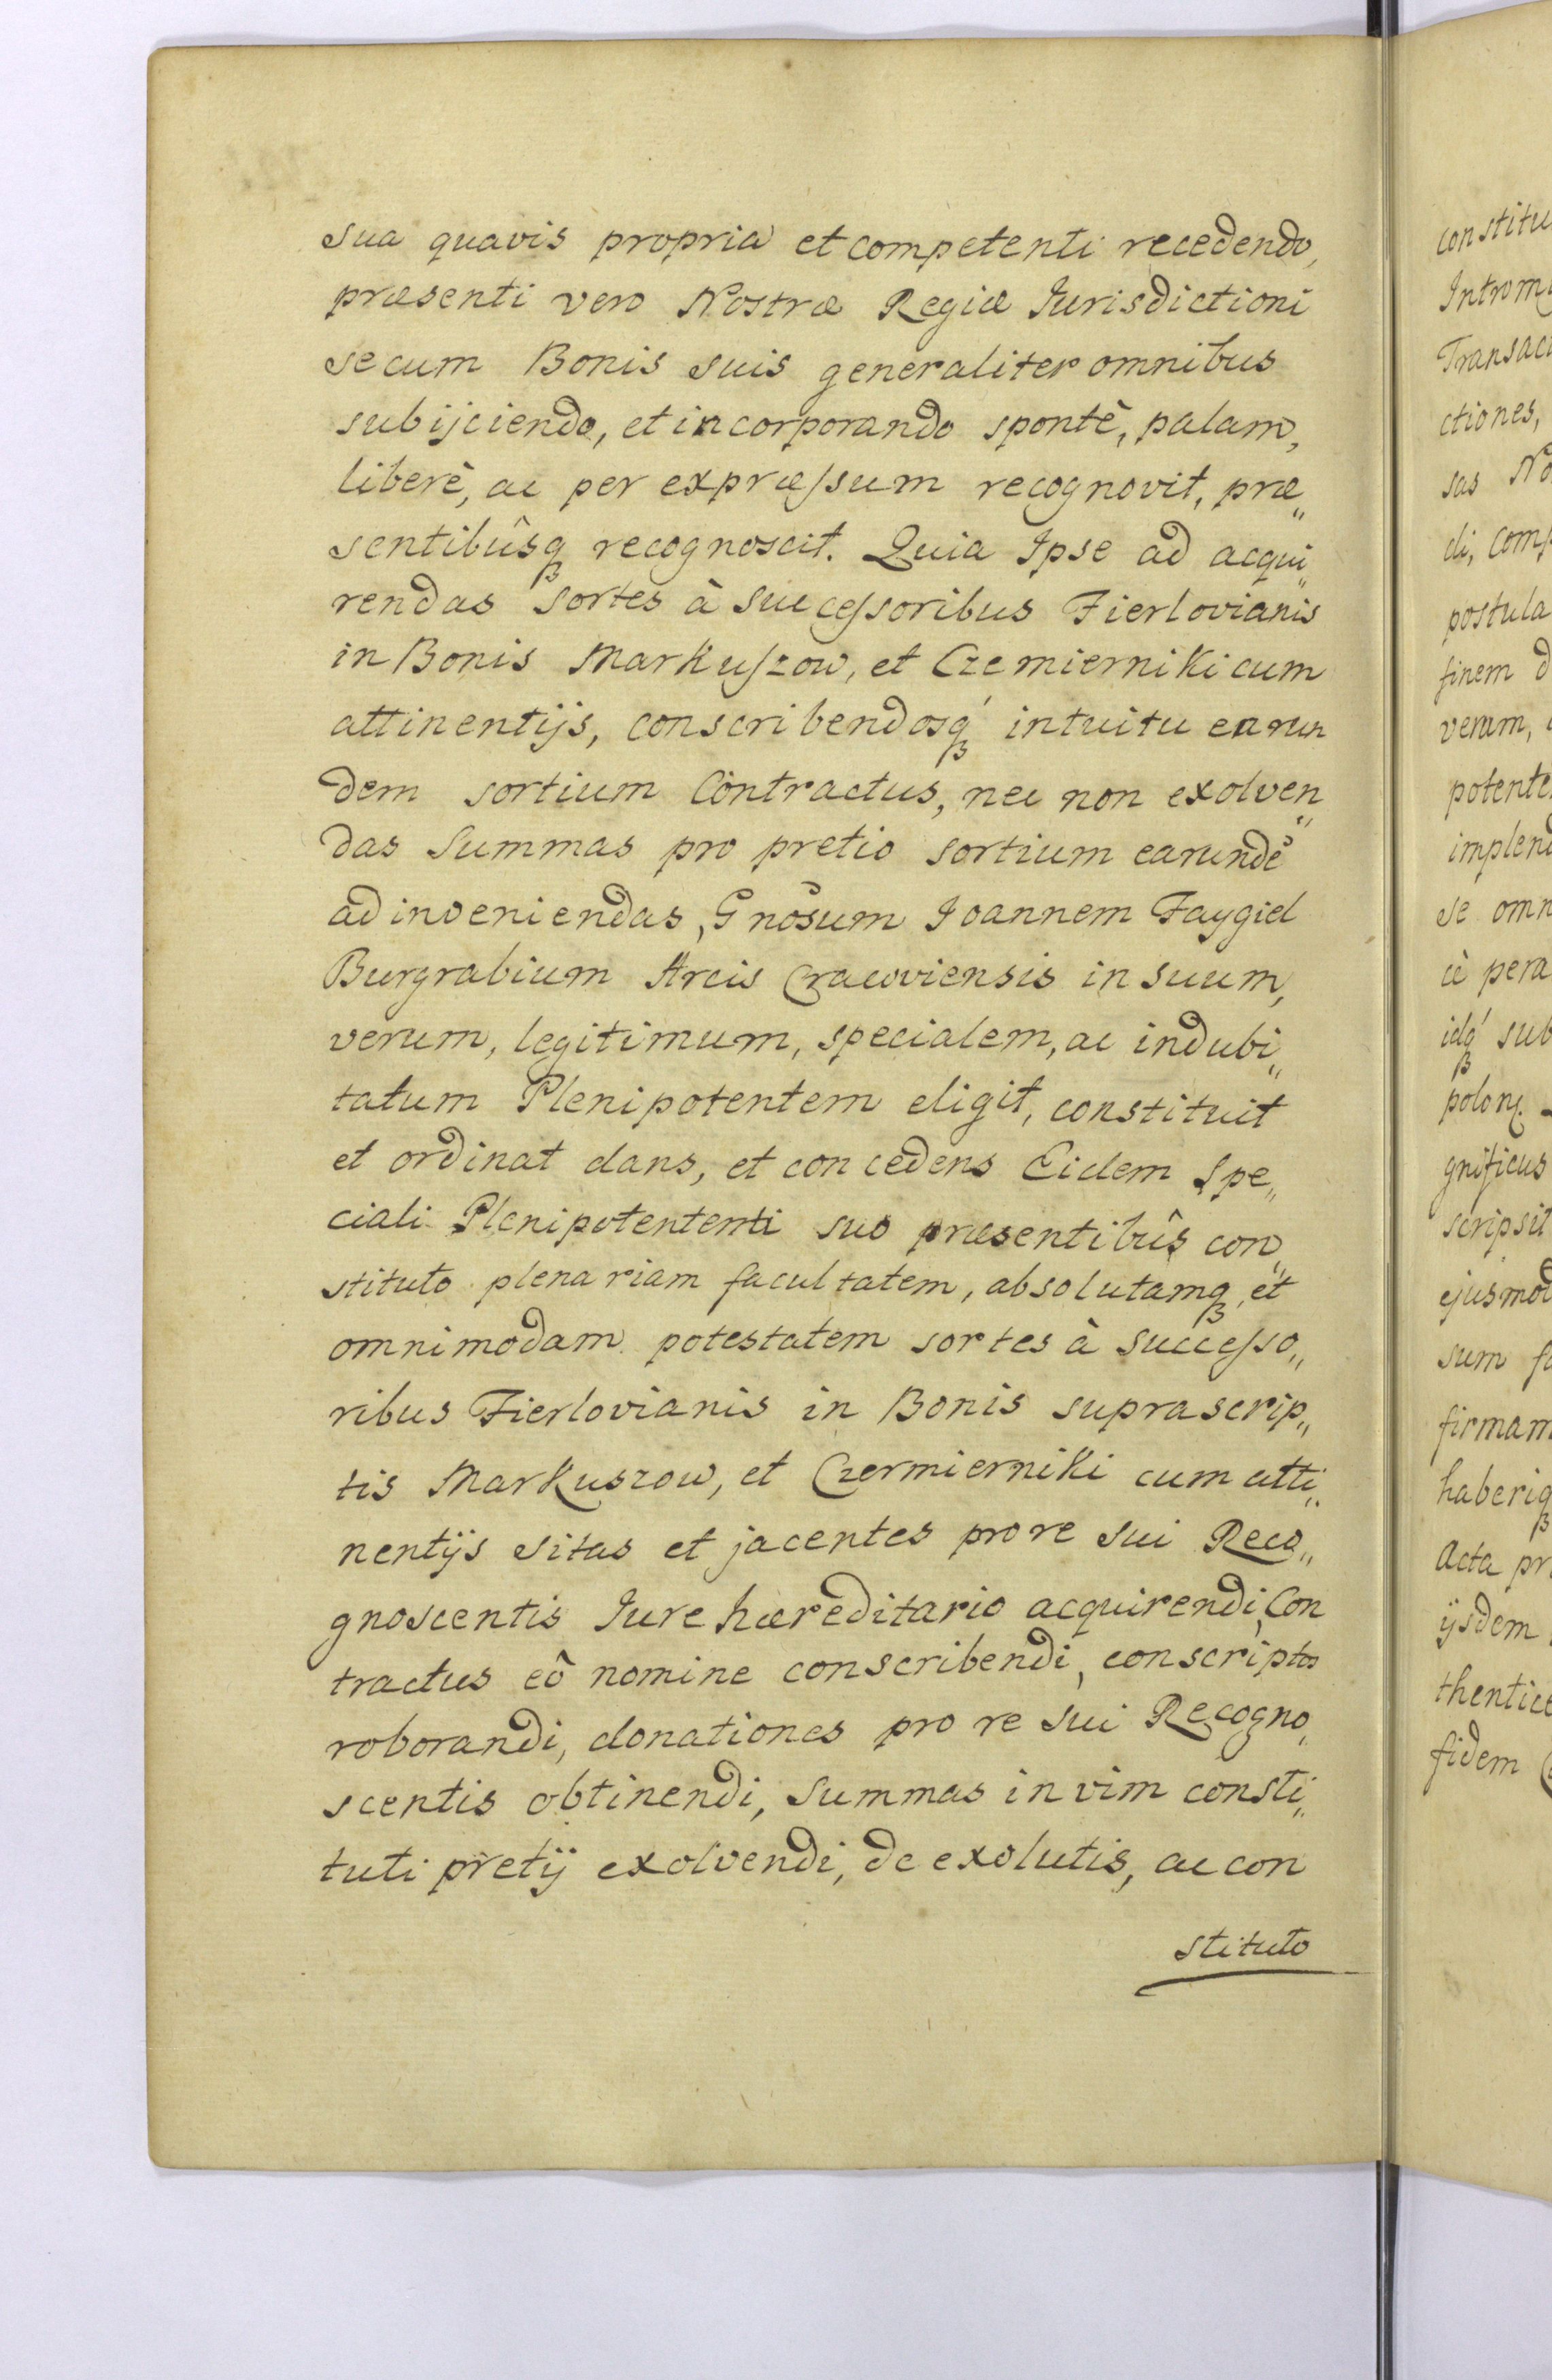 sua quavis propria et competenti recedendo,
præsenti vero Nostræ Regiæ Jurisdictioni
se cum Bonis suis generaliter omnibus
subijciendo, et incorporando spontè, palam,
liberè, ac per expræssum recognovit, præ„
sentibûsqꝫ recognoscit. Quia Ipse ad acqui„
rendas sortes à Successoribus Fierlovianis
in Bonis Markuszow, et Czemierniki cum
attinentijs, conscribendosqꝫ́ intuitu earun
dem sortium Contractus, nec non exolven„
das Summas pro pretio sortium earundē
adinveniendas, Gnõsum Joannem Faygiel
Burgrabium Arcis Cracoviensis in suum,
verum, legitimum, specialem, ac indubi„
tatum Plenipotentem eligit, constituit
et ordinat dans, et concedens Eidem Spe„
ciali Plenipotententi suo præsentibûs con„
stituto plenariam facultatem, absolutamqꝫ, et
omnimodam potestatem sortes à Successo„
ribus Fierlovianis in Bonis suprascrip„
tis Markuszow, et Czermierniki cum atti„
nentijs sitas et jacentes pro re sui Reco„
gnoscentis Jure hæreditario acquirendi, Con
tractus eô nomine conscribendi, conscriptos
roborandi, donationes pro re sui Recogno„
scentis obtinendi, Summas in vim consti„
tuti pretij exolvendi, de exolutis, ac con
stituto
constitu
Introm
Transac
ctiones,
sas No
di, comp
postula
finem d
veram,
potente
implend
se omn
cè pera
idqꝫ́ sub
polon.
gnificus
scripsit
ejusmod
sum fa
firmam
haberiqꝫ
Acta pr
ijsdem
thentice
fidem